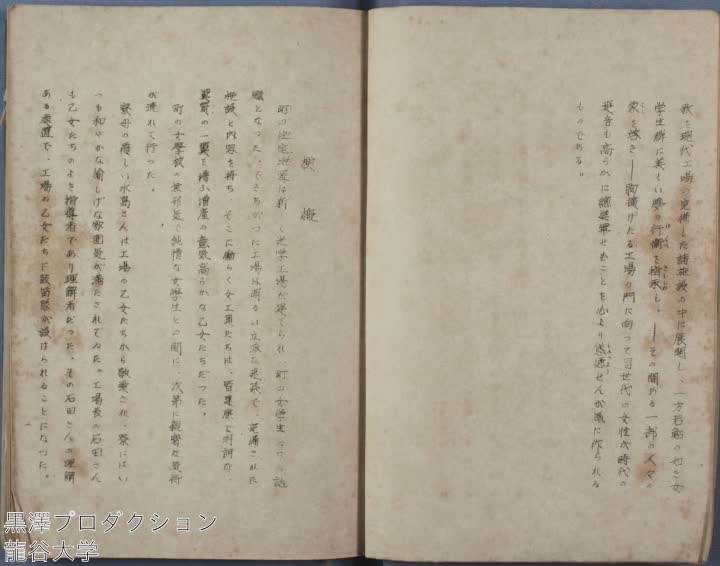 我を現代工場の完備した諸施設の中に展開し、一方若鮎の如き女
学生群に美しい夢の行衛を指示し、――その間ある一部の人々の
を啓き――胸廣げたる工場の門に向って現世代の女性が時代の
跫音も高らかに總進軍せむことを心より慫慂せんが為に作られる
ものである。
梗概
町の住宅地區に新しく光学工場が建てられ、町の女学生たちの話
題となった。そそり立つた工場は明るい立派な建築で、完備された
施設と内容を持ち、そこに働らく女工員たちは、皆健康で明朗な、
の一翼を擔ふ増産の意欲高らかな乙女たちだった。
町の女學校の無邪気で純情な女学生との間に、次第に親密な感情
が流れて行つた。
寮母の優しい水島さんは工場の乙女たちから敬愛され、寮にはい
つも和やかな愉しげな雰囲気が満たされてゐた。工場長の石田さん
も乙女たちのよき指導者であり理解者だつた。その石田さんの理解
ある処置で、工場の乙女たちに鼓笛隊が設けられることになつた。
黒澤プロダクション
龍谷大学